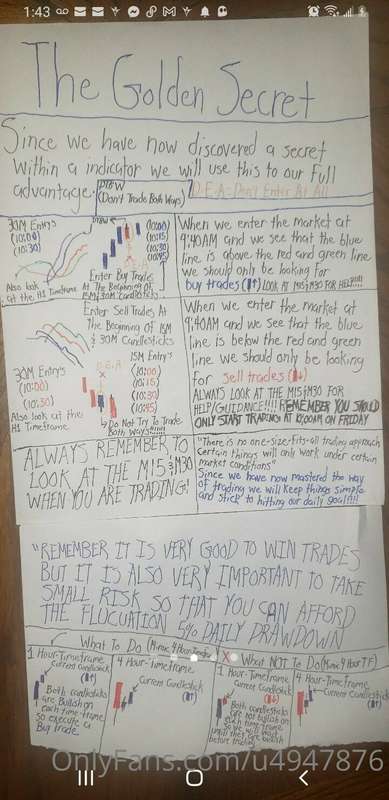 1:43
The Golden Secret
Since we have now discovered a secret
within a indicator we will use this to our full
advantage.
DTBW
(Don't Trade Both Ways)
D.E.A=Don't Enter At All
30M Entrys
(10:00)
(10:30)
Also look
at the H1 Timeframe
DTBW
(10:00)
(10:15)
(10:30)
(10:45)
Enter Buy Trades
At The Beginning of
15M/30M Candlesticks
When we enter the market at
9:40AM and we see that the blue
line is above the red and green line
we should only be looking for
buy trades(⬆) LOOK AT M15&M30 FOR HELP!!!!
Enter Sell Trades At
The Beginning of 15M
& 30M Candlesticks
15M Entry's
D.E.A
30M Entry's
(10:00)
(10:30)
Also look at the
H1 Timeframe.
(10:00)
(10:15)
(10:30)
(10:45)
Do Not Try To Trade
Both Ways
When we enter the market at
9:40AM and we see that the blue
line is below the red and green
line we should only be looking
for sell trades(⬇)
ALWAYS LOOK AT THE M15&M30 FOR
HELP/GUIDANCE!!!! REMEMBER YOU SHOULD
ONLY START TRADING AT 10:00AM ON FRIDAY
ALWAYS REMEMBER TO
LOOK AT THE M15&M30
WHEN YOU ARE TRADING!
"There is no one-size-fits-all trading approach
Certain things will only work under certain
market conditions"
Since we have now mastered the way
of trading we will keep things simple
and stick to hitting our daily goal!!!!
"REMEMBER IT IS VERY GOOD TO WIN TRADES
BUT IT IS ALSO VERY IMPORTANT TO TAKE
SMALL RISK SO THAT YOU CAN AFFORD
THE FLUCUATION 5% DAILY DRAWDOWN
What To Do
What NOT To Do
1 Hour-Timeframe
Current candlestick
(⬆)
Both candlesticks
are Bullish on
each timeframe
so execute a
Buy trade.
4 Hour-Timeframe
Current Candlestick
(⬆)
1 Hour-Timeframe
Current Candlestick
(⬇)
Both candlesticks
are not bullish on
4 Hour-Timeframe
Current Candlestick
(⬆)
OnlyFans.com/u4947876